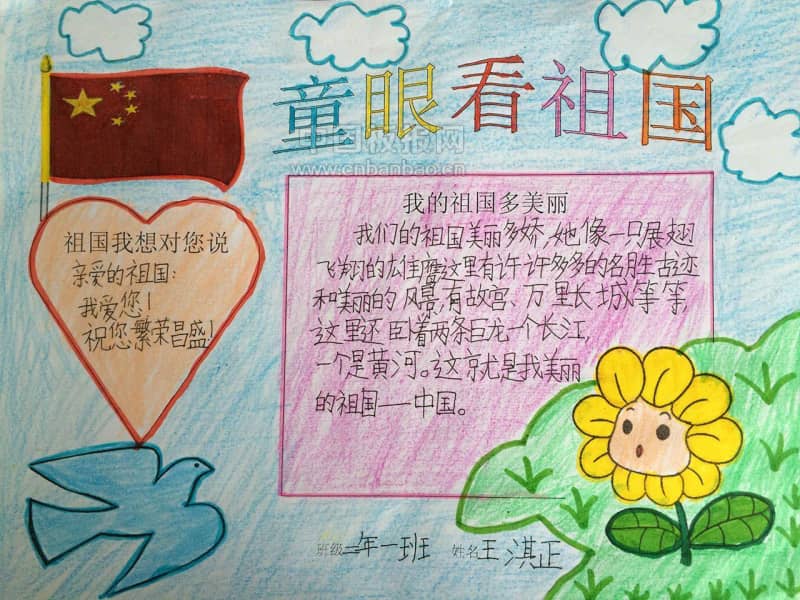 童眼看祖国
中国板报网
www.cnbanbao.cn
祖国我想对您说
亲爱的祖国:
我爱您!
祝您繁荣昌盛!
我的祖国多美丽
我们的祖国美丽多娇,她像一只展翅
飞翔的雄鹰这里有许许多多的名胜古迹
和美丽的风景,有故宫、万里长城等等,
这里还回着两条巨龙一个长江,
一个是黄河。这就是我美丽
的祖国——中国。
班级二年一班 姓名王淇正